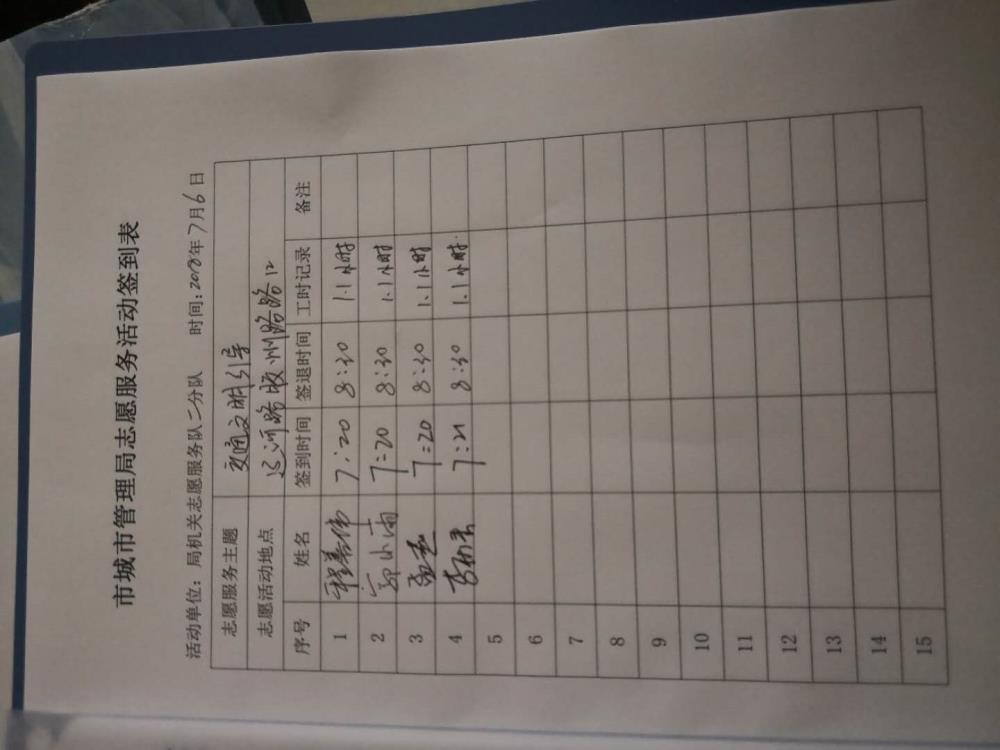 市城市管理局志愿服务活动签到表
活动单位：局机关志愿服务队二分队 时间：2018年7月6日
志愿服务主题 交通文明引导
志愿活动地点 运河路徐州路路口
序号 姓名 签到时间 签退时间 工时记录 备注
1 程善伟 7:20 8:30 1.1小时
2 7:20 8:30 1.1小时
3 7:20 8:30 1.1小时
4 7:21 8:30 1.1小时
5
6
7
8
9
10
11
12
13
14
15